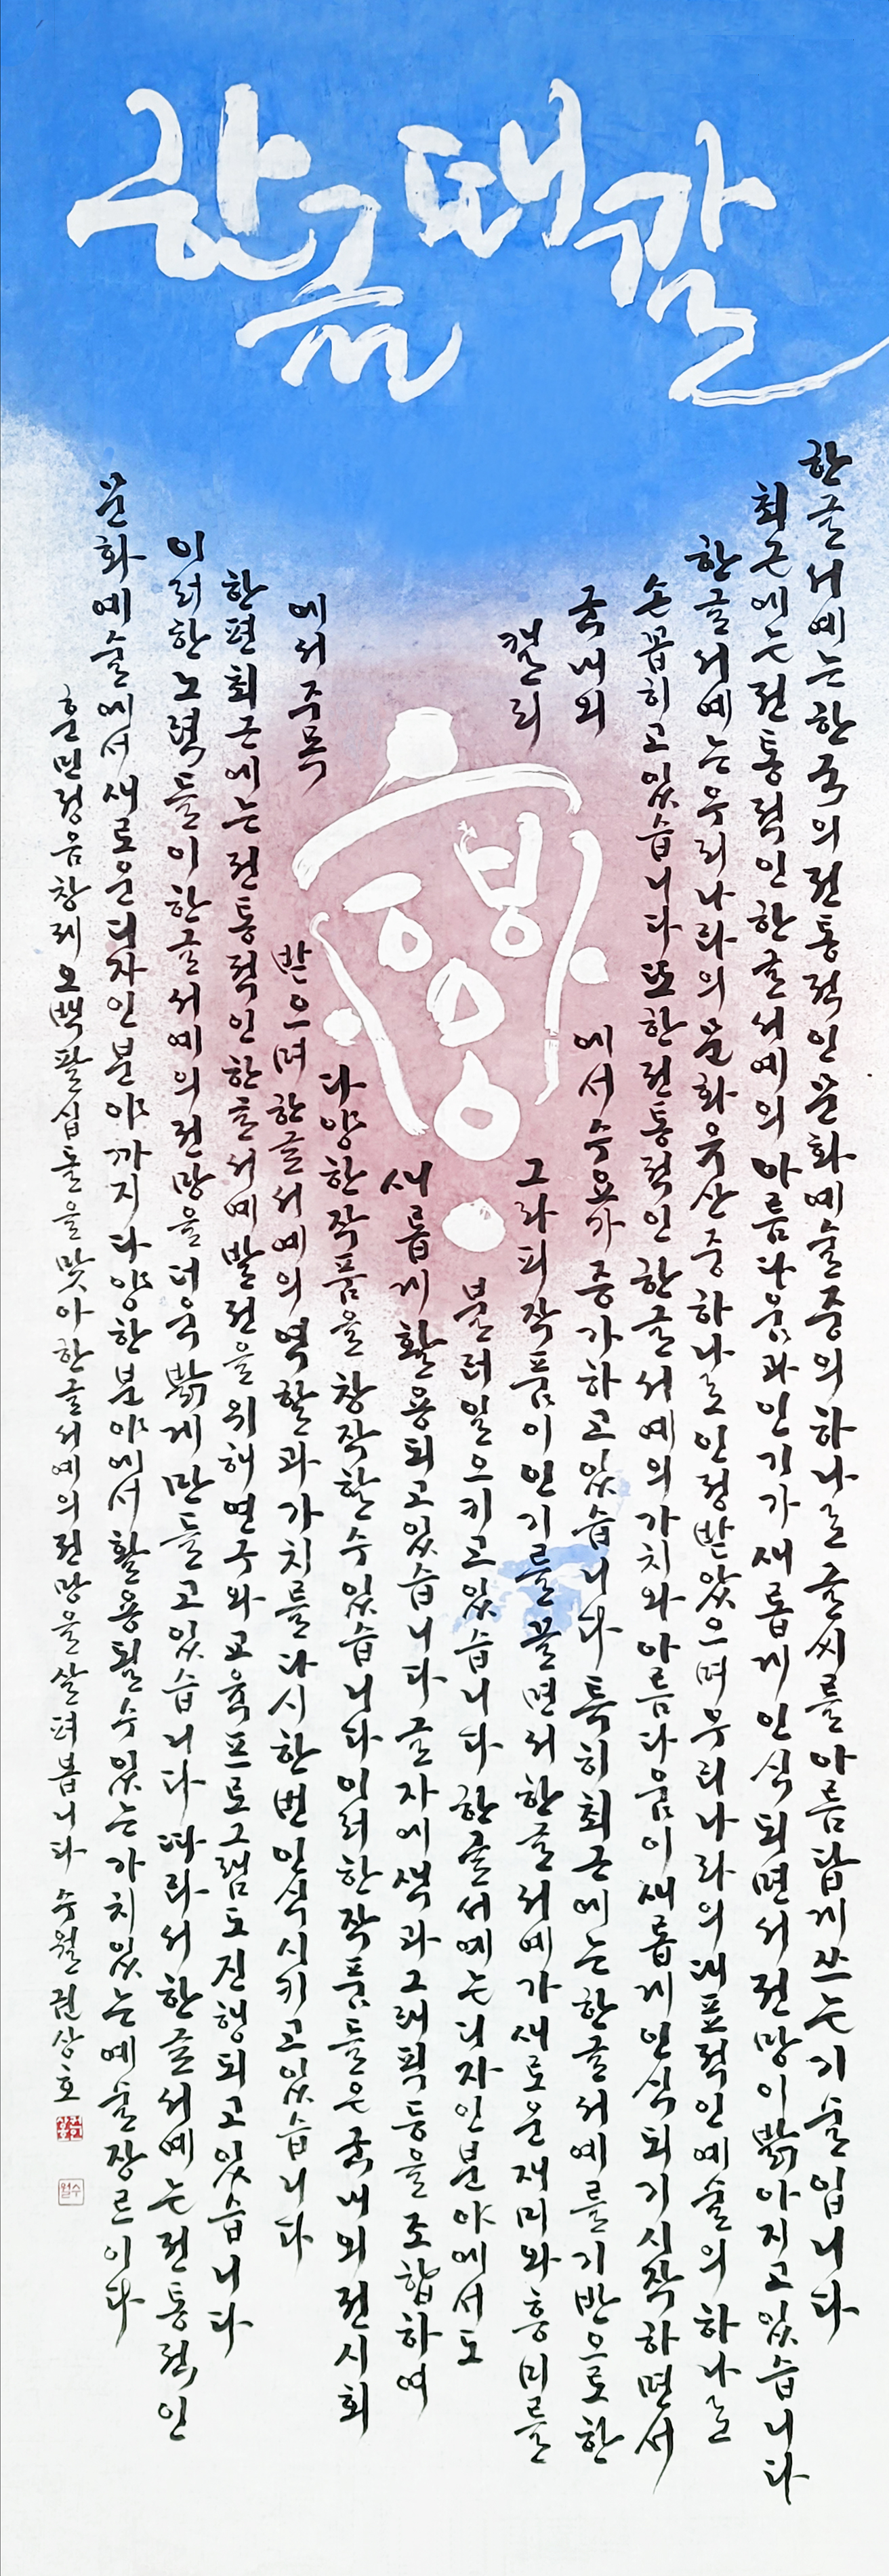 한글때깔
한글서예는한국의전통적인문화예술중의하나로글씨를아름답게쓰는기술입니다
최근에는전통적인한글서예의아름다움과인기가새롭게인식되면서전망이밝아지고있습니다
한글서예는우리나라의문화유산중하나로인정받았으며우리나라의대표적인예술의하나로
손꼽히고있습니다또한전통적인한글서예의가치와아름다움이새롭게인식되기시작하면서
국내외 에서수요가증가하고있습니다특히최근에는한글서예를기반으로한
캘리 그라피작품이인기를끌면서한글서예가새로운재미와흥미를
불러일으키고있습니다한글서예는디자인분야에서도
새롭게활용되고있습니다글자에색과그래픽등을조합하여
다양한작품을창작할수있습니다이러한작품들은국내외전시회
에서주목 받으며한글서예의역할과가치를다시한번인식시키고있습니다
한편최근에는전통적인한글서예발전을위해연구와교육프로그램도진행되고있습니다
이러한노력들이한글서예의전망을더욱밝게만들고있습니다따라서한글서예는전통적인
문화예술에서새로운디자인분야까지다양한분야에서활용될수있는가치있는예술장르이다
훈민정음창제오백팔십돌을맞아한글서예의전망을살펴봅니다 수월권상호
수월